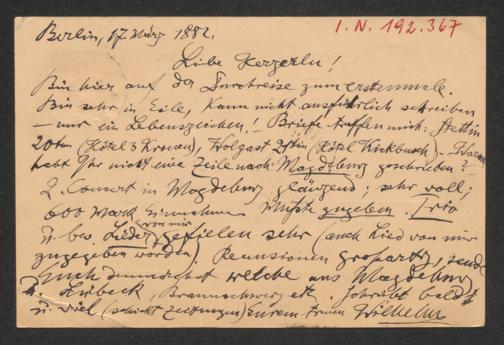 I. N. 192.367
Berlin, 17. März 1882.
Liebe Herzerln!
Bin hier auf der Durchreise zum erstenmale.
Bin sehr in Eile, kann nicht ausführlich schreiben
– nur ein Lebenszeichen! – Briefe treffen mich: Stettin
20ten (Hôtel 3 Kronen), Wolgast 21ten (Hôtel Kirkbusch). – Warum
habt Ihr nicht eine Zeile nach Magdeburg geschrieben? –
2. Concert in Magdeburg glänzend; sehr voll;
600 Mark Einnahme. Mußte zugeben. Trio
u. bes. Lieder von mir gefielen sehr (auch Lied von mir
zugegeben worden). Recensionen großartig, sende
Euch demnächst welche aus Magdeburg
u. Lübeck, Braunschweig etc. Schreibt bald
u. viel (schickt Zeitungen) Eurem treuen Wilhelm